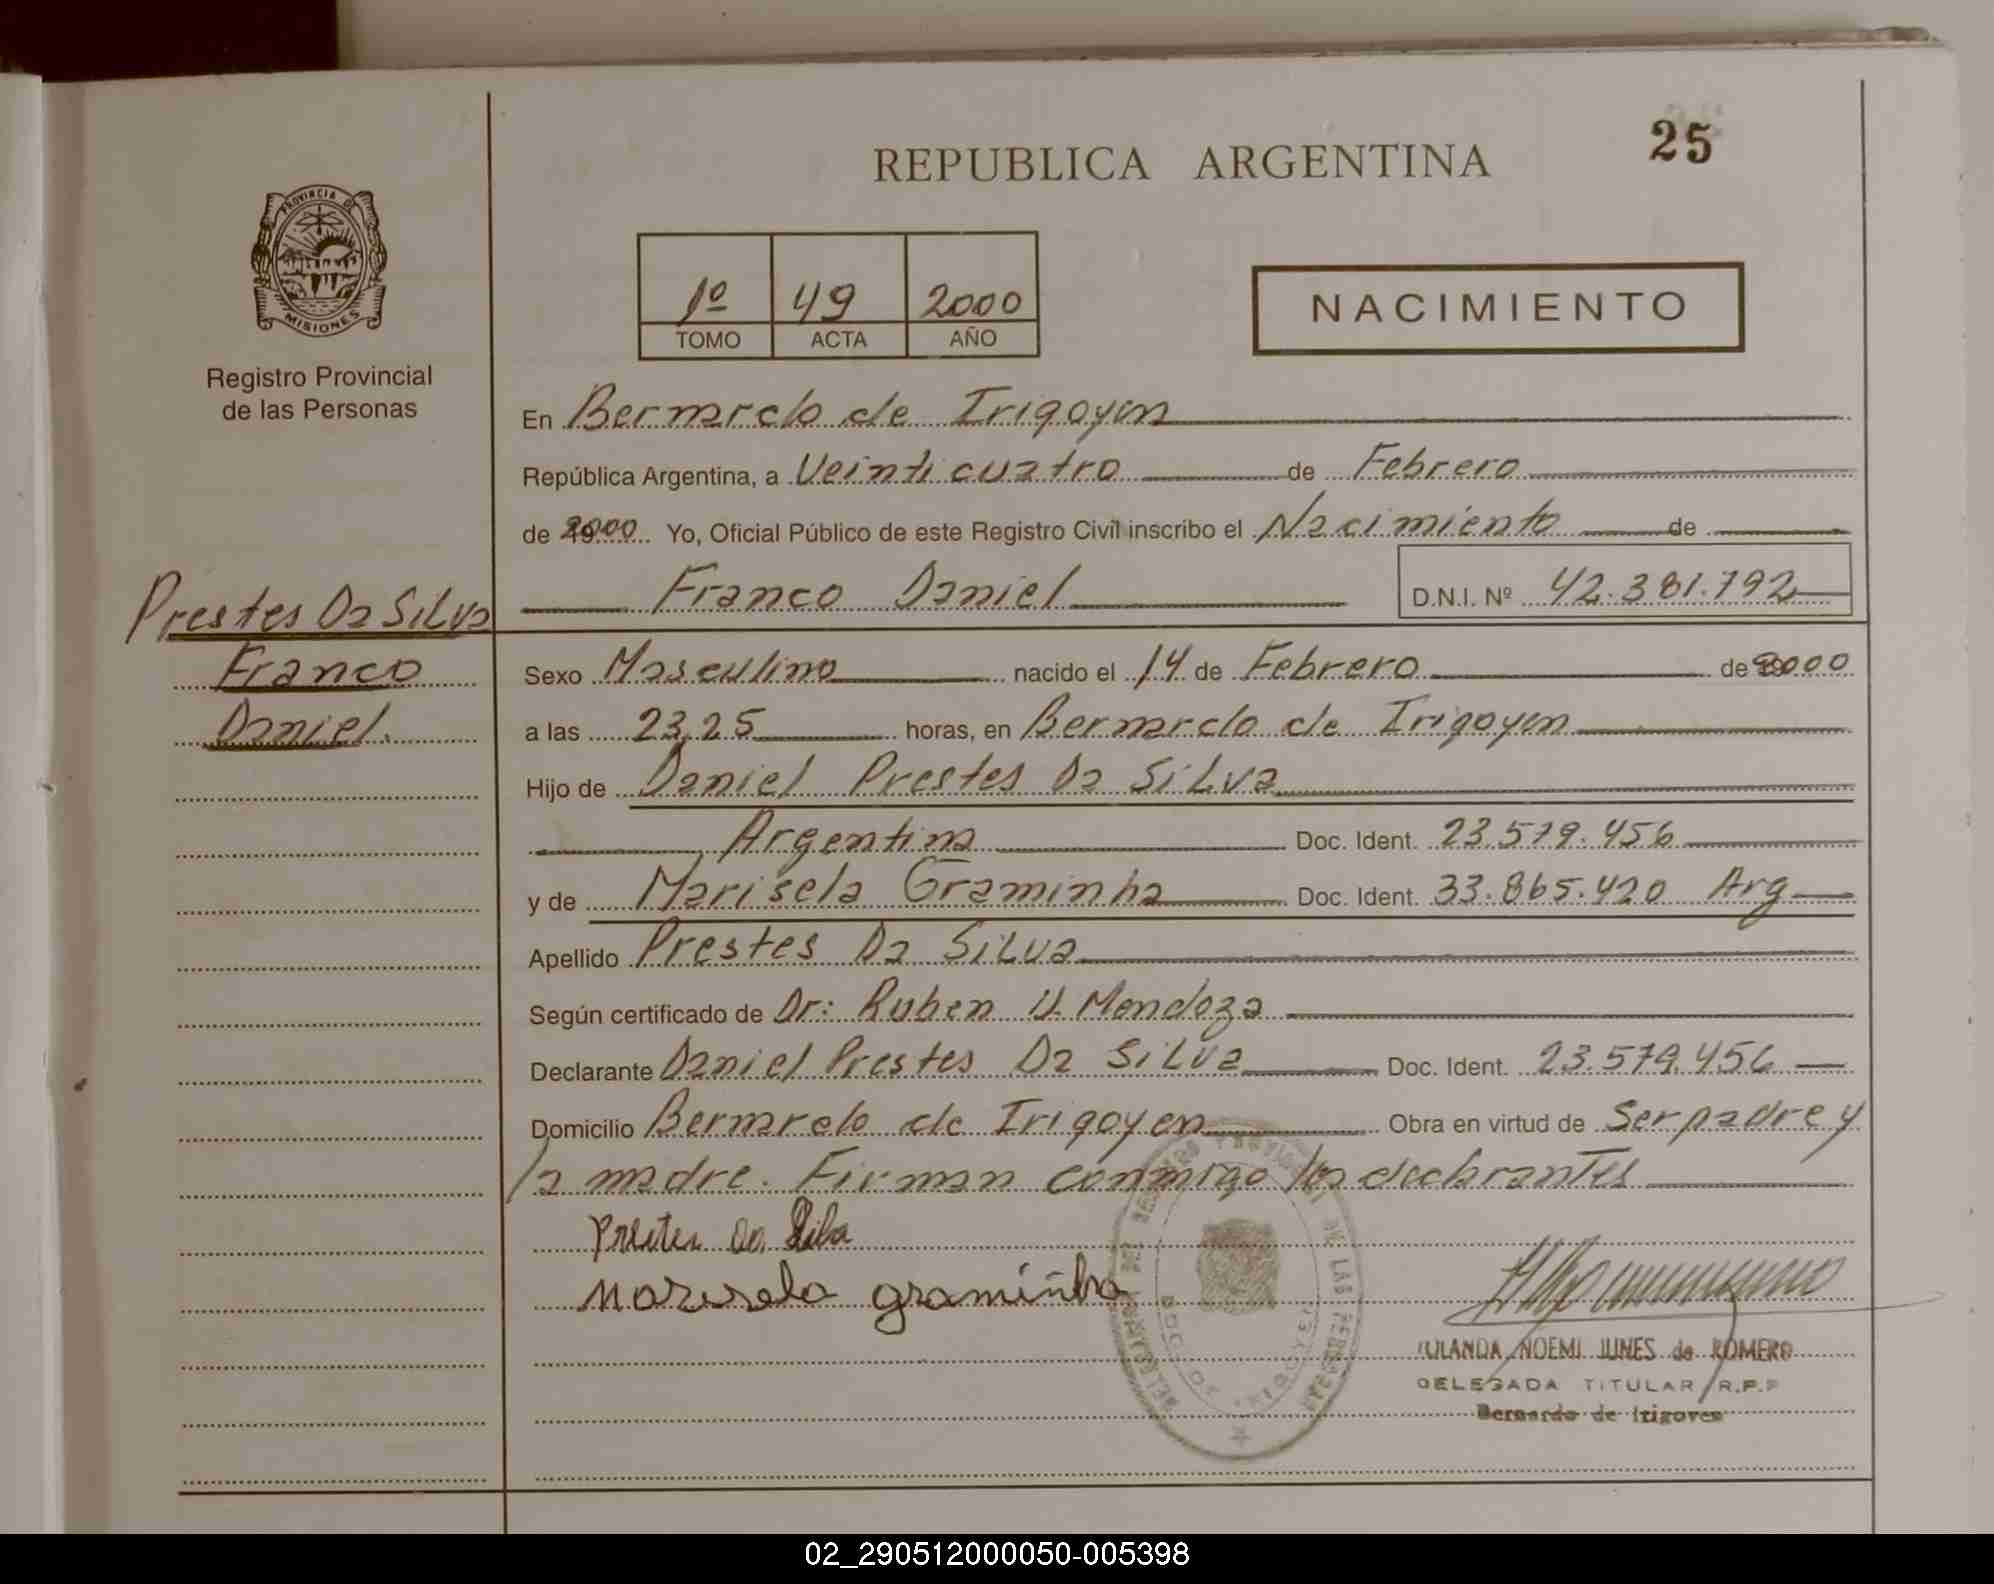 25
REPUBLICA ARGENTINA
PROVINCIA DE
MISIONES
Registro Provincial
de las Personas
1º 49 2000
TOMO ACTA AÑO
NACIMIENTO
En Bernardo de Irigoyen
República Argentina, a Veinticuatro de Febrero
de 2000 Yo, Oficial Público de este Registro Civil inscribo el Nacimiento de
Franco Daniel D.N.I. Nº 42.381.792
Prestes Da Silva
Franco
Daniel.
Sexo Masculino nacido el 14 de Febrero de 2000
a las 23,25 horas, en Bernardo de Irigoyen
Hijo de Daniel Prestes Da Silva
Argentina Doc. Ident. 23.579.456
y de Marisela Graminha Doc. Ident. 33.865.420 Arg
Apellido Prestes Da Silva
Según certificado de Dr: Ruben U. Mendoza
Declarante Daniel Prestes Da Silva Doc. Ident. 23.579.456
Domicilio Bernardo de Irigoyen Obra en virtud de Ser padre y
la madre. Firman conmigo los declarantes
Prestes Da Silva
Marisela graminha
NOEMI JUNES de ROMERO
DELEGADA TITULAR R.P.P
Bernardo de Irigoyen
02_290512000050-005398